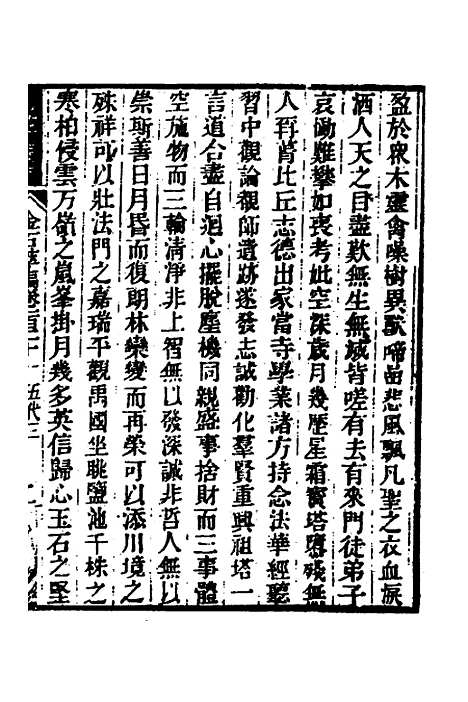 盈於衆木靈禽噪樹異獸啼嵒悲風飄凡聖之衣血淚
洒人天之目盡歎無生無滅皆嗟有去有來門徒弟子
哀慟難攀如喪考妣空深歲月幾歷星霜寳塔隳殘無
人再葺比丘志德出家當寺學業諸方持念法華經聽
習中觀論觀師遺跡遂發志誠勸化羣賢重興祖塔一
言道合盡自迴心擺脫塵機同親盛事捨財而三事體
空施物而三輪清淨非上智無以發深誠非哲人無以
崇斯善日月昏而復朗林欒變而再榮可以添川境之
殊祥可以壯法門之嘉瑞平觀禹國坐眺鹽池千株之
寒柏侵雲万嶺之嵐峯掛月幾多英信歸心玉石之堅
金石萃編卷一百二十一 五代三